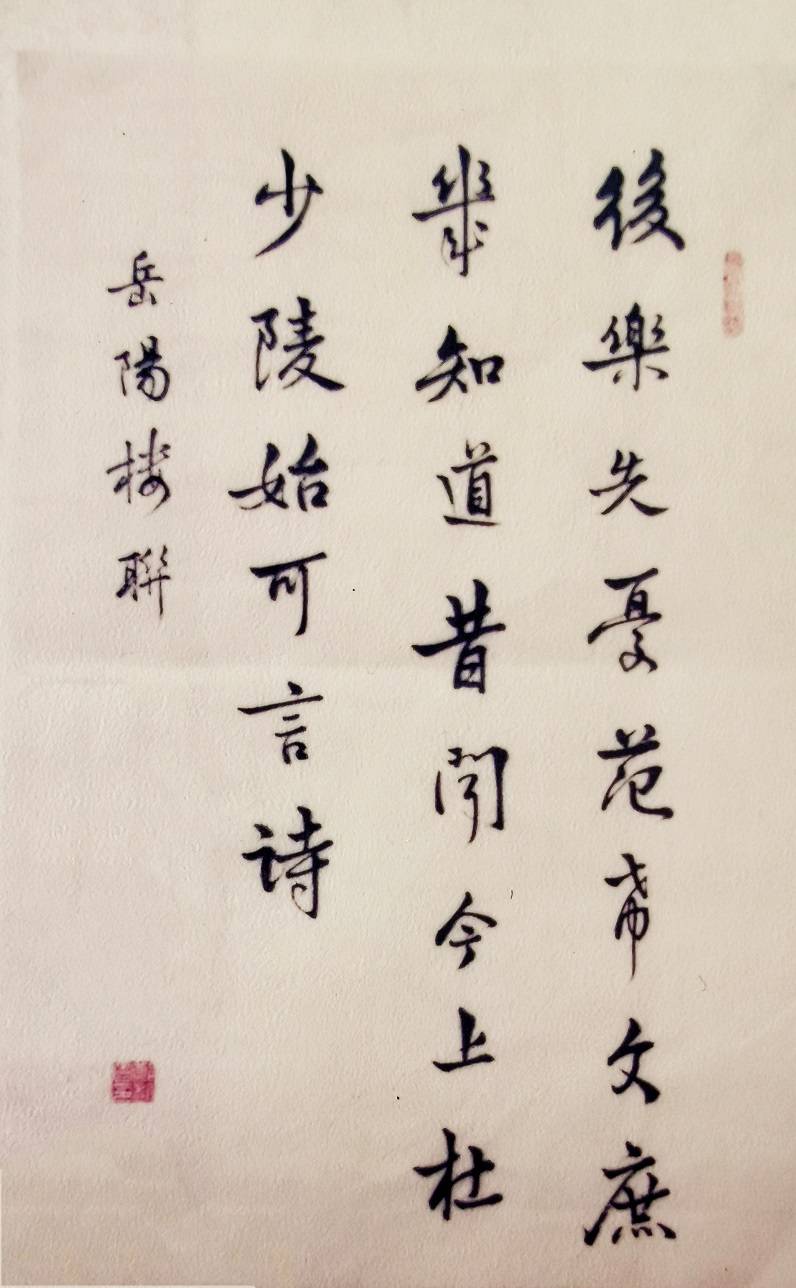 後樂先憂范希文庶
幾知道昔聞今上杜
少陵始可言詩
岳陽樓聯